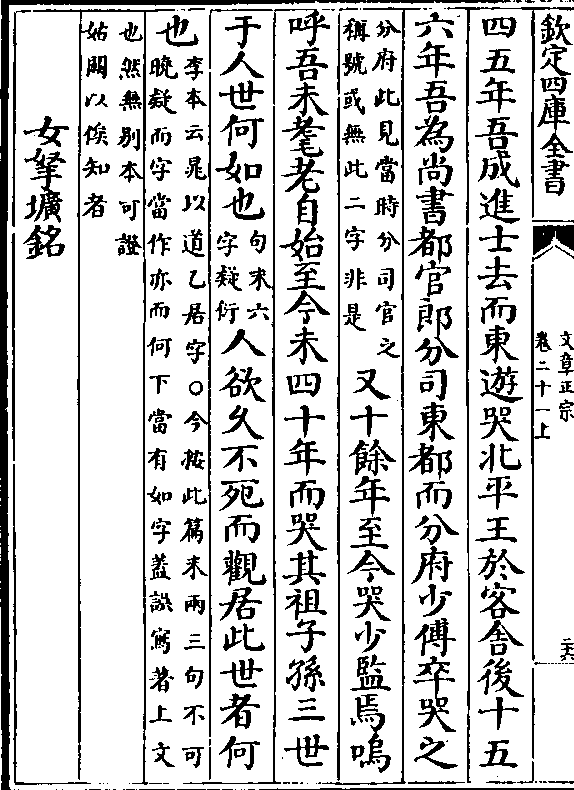 欽定四庫全書
文章正宗
卷二十一上
二六
四五年吾成進士去而東遊哭北平王於客舍後十五
六年吾為尚書都官郎分司東都而分府少傅卒哭之
分府此見當時分司官之
稱號或無此二字非是
又十餘年至今哭少監焉嗚
呼吾未耄老自始至今未四十年而哭其祖子孫三世
于人世何如也
句末六
字疑衍
人欲久不死而觀居此世者何
也
李本云晁以道乙居字〇今按此篇末兩三句不可
曉疑而字當作亦而何下當有如字葢誤寫著上文
也然無別本可證
姑闕以俟知者
女挐壙銘